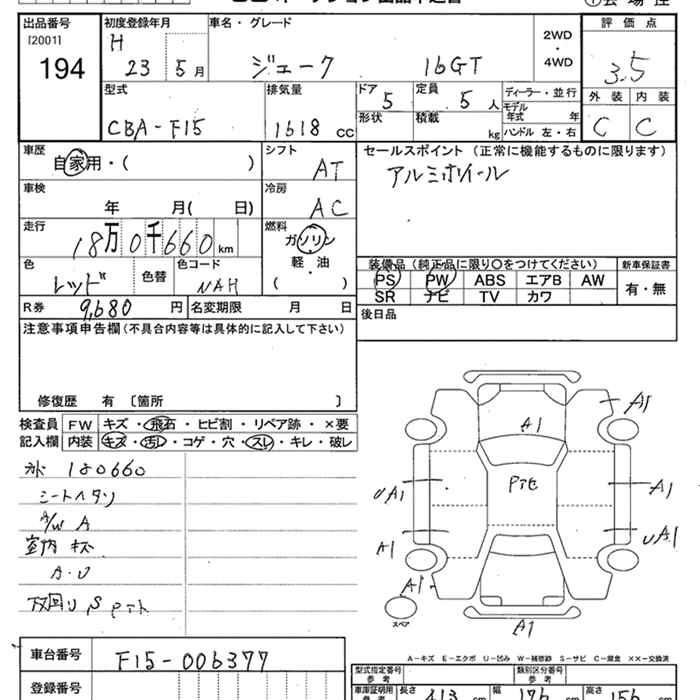 出品番号 初度登録年月 車名・グレード 2WD・4WD 評価点
[2001] H
194 23 5月 ジューク 16GT 3.5
型式 排気量 ドア 定員 ディーラー・並行 外装 内装
CBA-F15 1618 CC 5 5人 モデル年式 年 C C
形状 積載 kg ハンドル 左・右
車歴 自家用・( ) シフト AT セールスポイント (正常に機能するものに限ります)
アルミホイール
車検 年 月( 日) 冷房 AC
走行 18万0千660km 燃料 ガソリン・軽・油 ( )
色 レッド 色替 色コード NAH
装備品 (純正品に限り○をつけてください) 新車保証書
PS PW ABS エアB AW 有・無
SR ナビ TV カワ
R券 9,680円 名変期限 月 日 後日品
注意事項申告欄 (不具合内容等は具体的に記入して下さい)
修復歴 有 〔箇所 〕
検査員記入欄 FW キズ・飛石・ヒビ割・リペア跡・×要
内装 キズ・汚レ・コゲ・穴・スレ・キレ・破レ
180660
シートヘタリ
A/W A
室内キズ
A・U
下廻りS
A1
A1
Pit
UA1
A1
UA1
A1
A1
A1
スペア
A-キズ E-エクボ U-凹み W-補修跡 S-サビ C-腐食 ××-交換済
車台番号 F15-006377
登録番号
型式指定番号 参考 類別区分番号 参考
車庫証明用 長さ 413 cm 幅 176 cm 高さ 156 cm